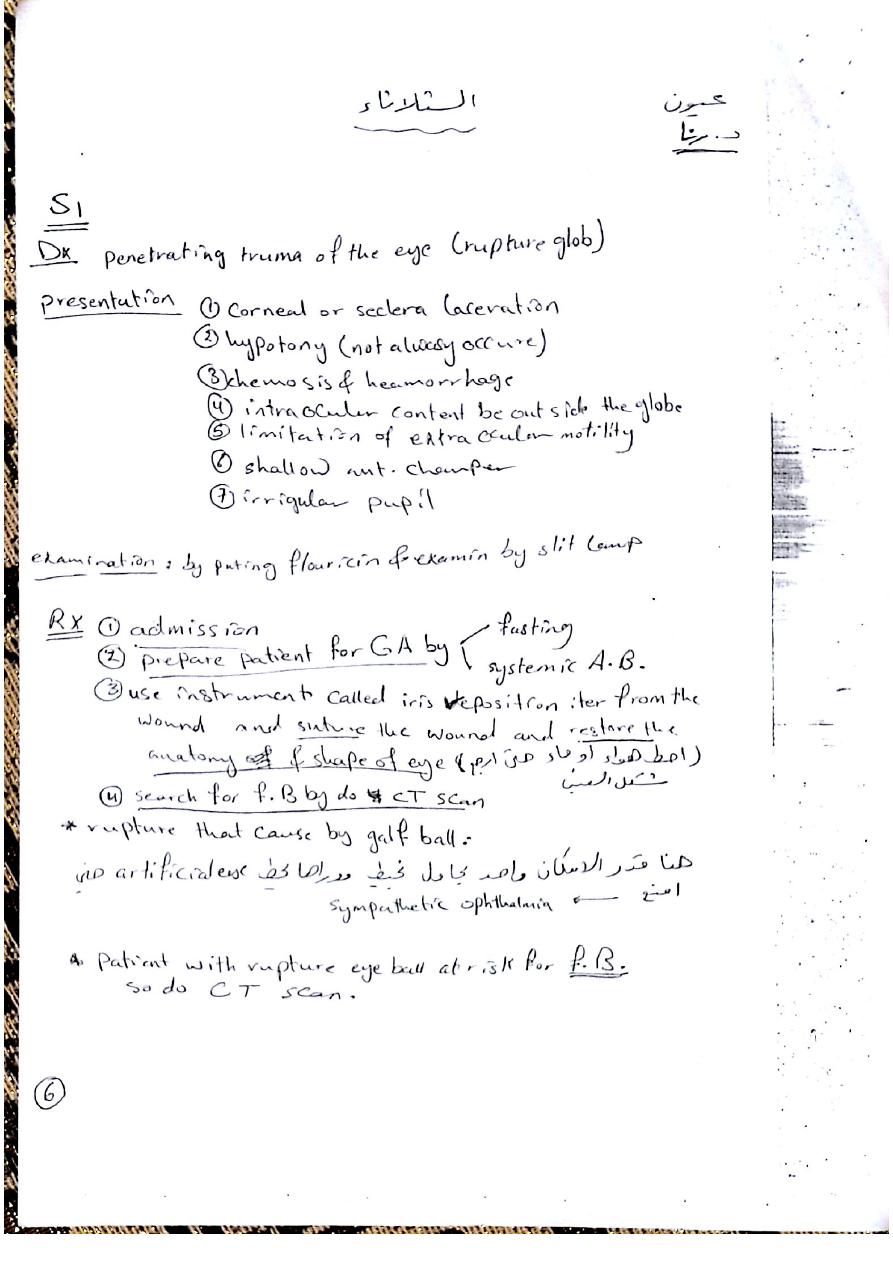 عيون
الثلاثاء
د. رنا
S1
Dx penetrating truma of the eye (rupture glob)
presentation ① corneal or seclera laceration
② hypotony (not alwasy occure)
③ chemosis & heamorrhage
④ intraocular content be out side the globe
⑤ limitation of extra occular motility
⑥ shallow ant. chamber
⑦ irrigular pupil
examination: by puting flouricin & examin by slit lamp
Rx ① admission
② prepare patient for GA by fasting
systemic A.B.
③ use instrument called iris from the
wound and suture the wound and restore the
anatomy of shape of eye (احط هواء أو ماء حتى ارجع
شكل العين)
④ search for f.B by do CT scan
* rupture that cause by galf ball:
هنا قدر الامكان واحد يحاول يخيط وراها يحط artificial eye حتى
امنع ← sympathetic ophthalmia
* Patient with rupture eye ball at risk for f.B.
so do CT scan.
6